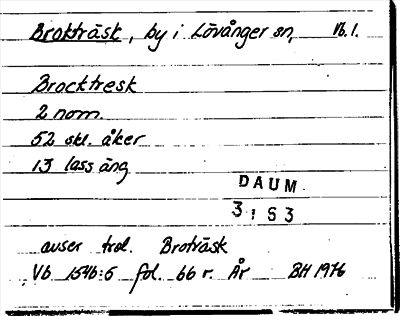 Brokträsk, by i Lövånger sn, Vb.l.
Brocktresk
2 nom.
52 skl. åker
13 lass äng
DAUM
3153
avser trol. Broträsk
Vb 1546:6 fol. 66 r. År BH 1976